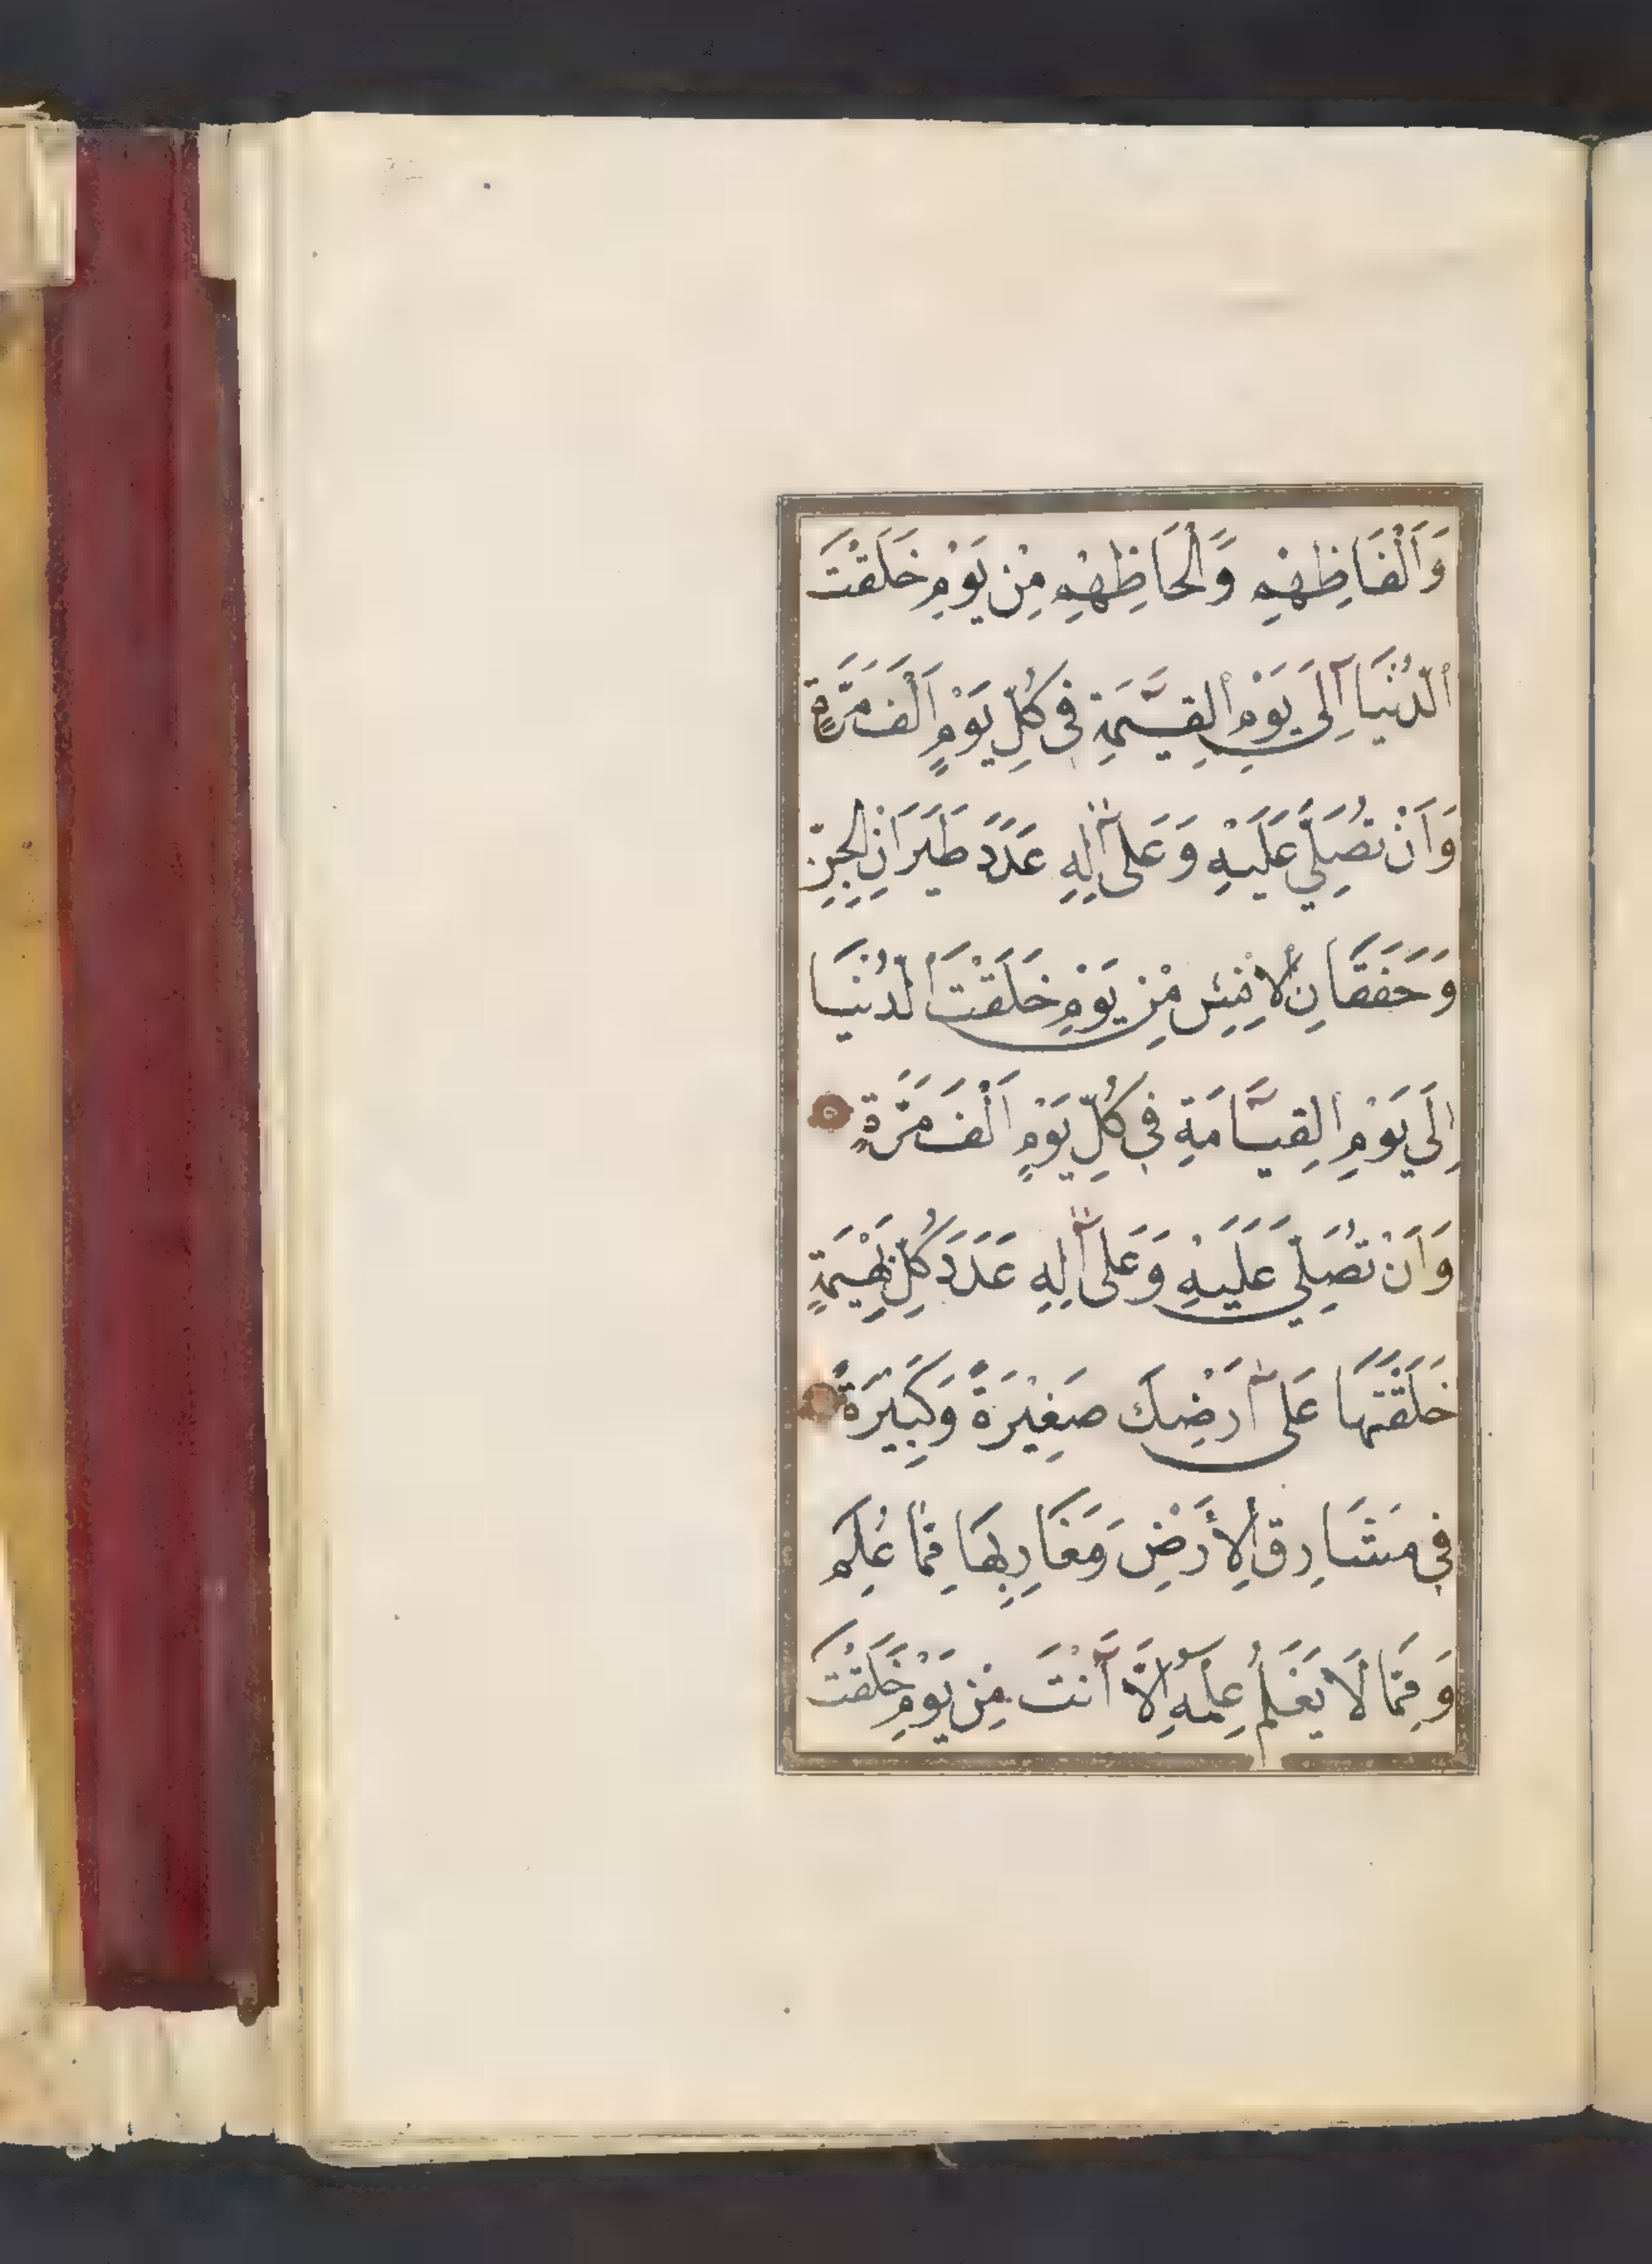 وَاَلْفَاظِهِمْ وَاَلْحَاظِهِمْ مِنْ يَوْمِ خَلَقْتَ
الدُّنْيَا اِلَى يَوْمِ الْقِيٰمَةِ فِى كُلِّ يَوْمٍ اَلْفَ مَرَّةٍ
وَاَنْ تُصَلِّيَ عَلَيْهِ وَعَلَى اٰلِهِ عَدَدَ طَيَرَانِ الْجِنِّ
وَخَفَقَانِ الْاِنْسِ مِنْ يَوْمِ خَلَقْتَ الدُّنْيَا
اِلَي يَوْمِ الْقِيَامَةِ فِي كُلِّ يَوْمٍ اَلْفَ مَرَّةٍ
وَاَنْ تُصَلِّيَ عَلَيْهِ وَعَلَى اٰلِهِ عَدَدَ كُلِّ بَهِيْمَةٍ
خَلَقْتَهَا عَلَى اَرْضِكَ صَغِيْرَةً وَكَبِيْرَةً
فِي مَشَارِقِ الْاَرْضِ وَمَغَارِبِهَا مِمَّا عُلِمَ
وَمِمَّا لَا يَعْلَمُ عِلْمَهُ اِلَّا اَنْتَ مِنْ يَوْمِ خَلَقْتَ